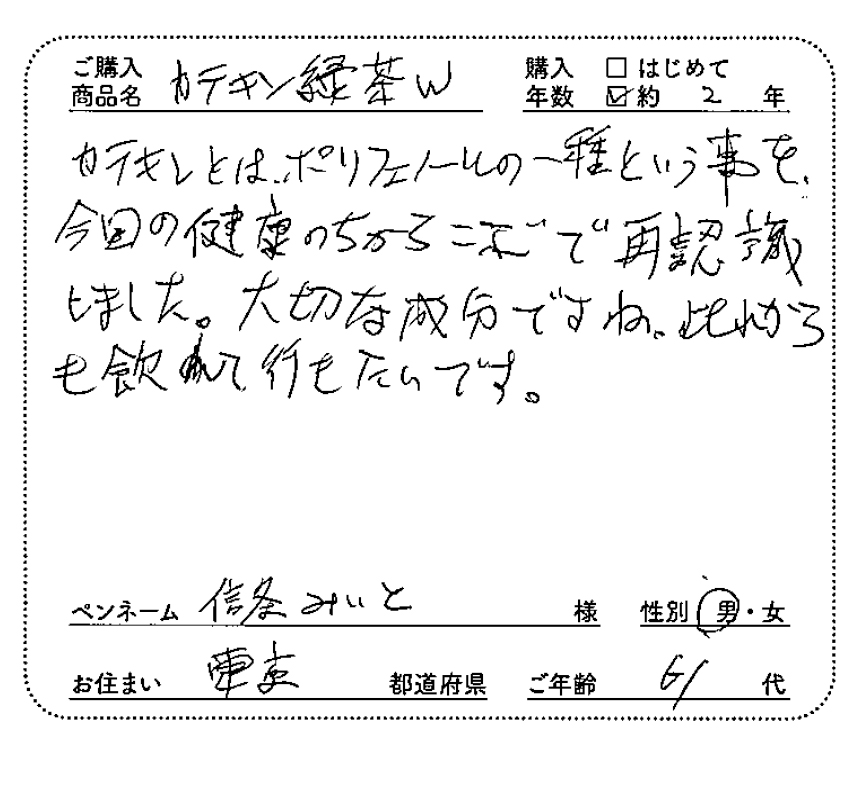 ご購入 商品名 カテキン緑茶W 購入年数 □ はじめて ☑ 約 2 年
カテキンとは、ポリフェノールの一種という事を、
今回の健康のちから で再認識
しました。大切な成分ですね。此れから
も飲んで行きたいです。
ペンネーム 信条みいと 様 性別 男・女
お住まい 東京 都道府県 ご年齢 61 代